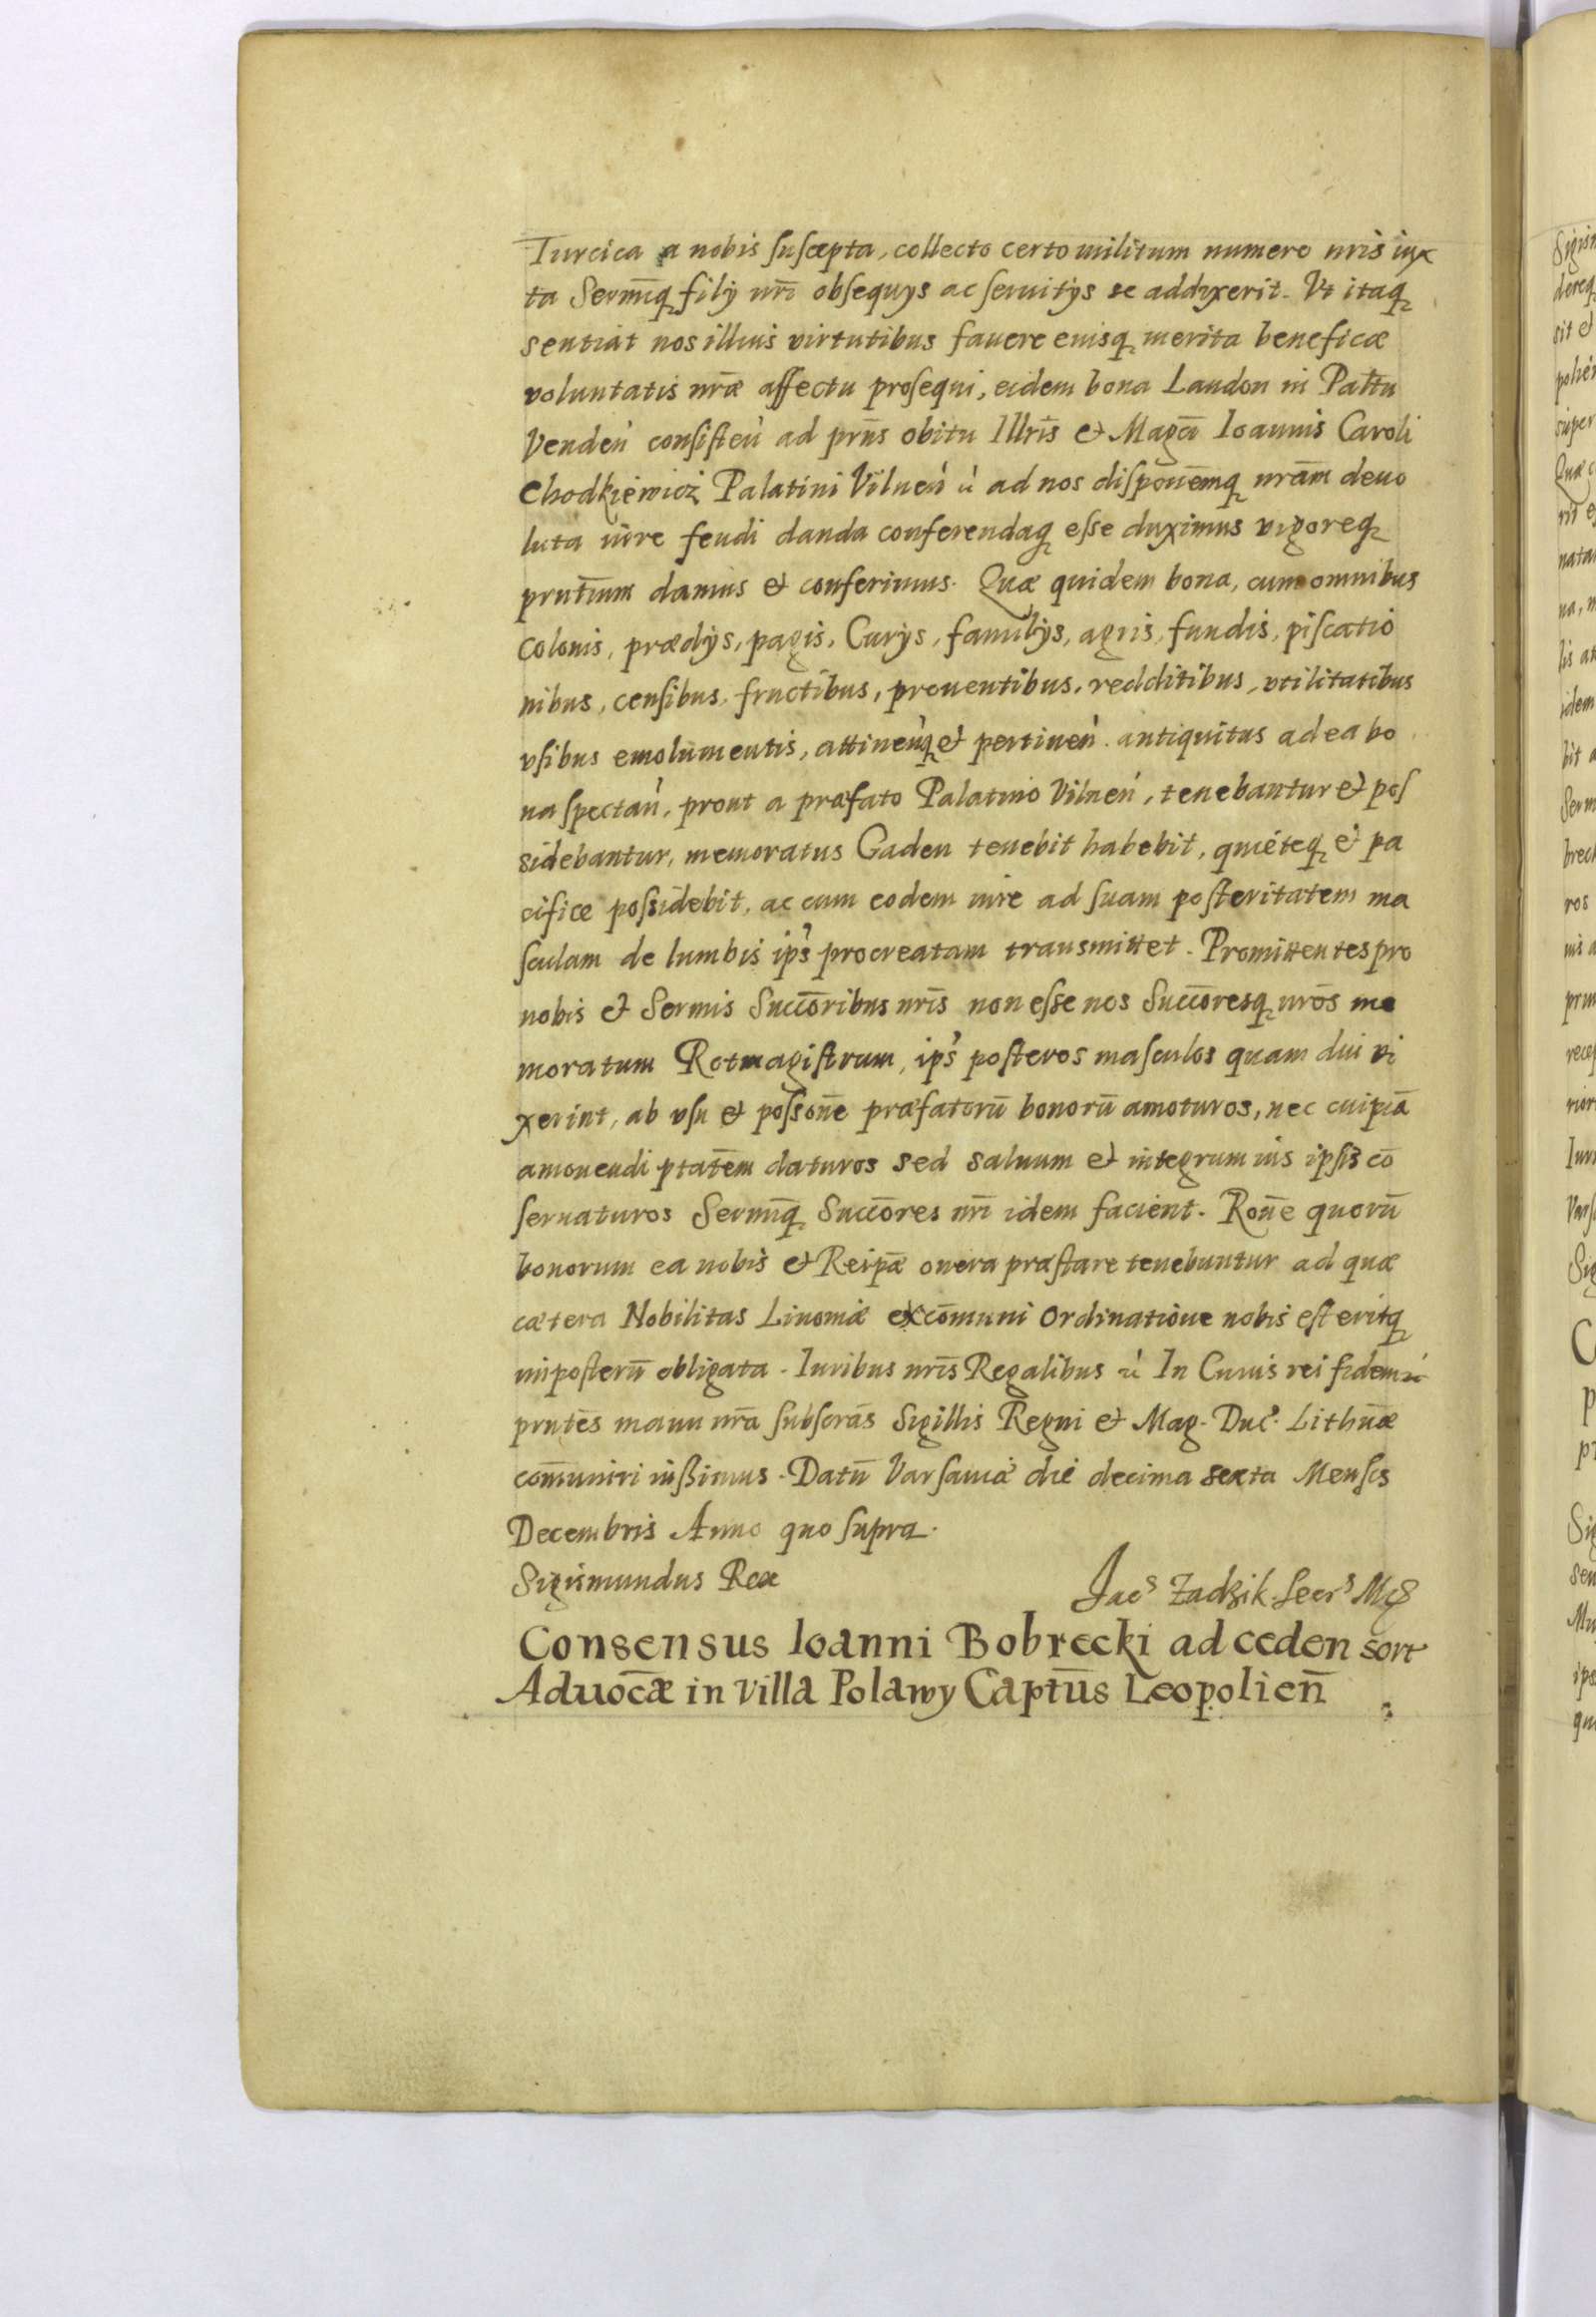 Turcica a nobis suscepta, collecto certo militum numero nris iux
ta Sermiq filij nri obsequys ac seruitys se addixerit. Vt itaq
sentiat nos illius virtutibus fauere eiusq merita beneficæ
voluntatis nræ affectu prosequi, eidem bona Laudon in Pałtu
Venden consisten ad prns obitu Illris et Magci Ioannis Caroli
Chodkiewicz Palatini Vilnen ad nos dispoñemq nram deuo
luta iure feudi danda conferendaq esse duximus vigoreq
prntium damus et conferimus. Quæ quidem bona, cum omnibus
Colonis, prædys, pagis, Curys, familys, agris, fundis, piscatio
nibus, censibus, fructibus, prouentibus, redditibus, vtilitatibus
vsibus emolumentis, attinenq et pertinen. antiquitus ad ea bo
na spectan, prout a præfato Palatino Vilnen, tenebantur et pos
sidebantur, memoratus Gaden tenebit habebit, quieteq et pa
cifice possidebit, ac cum eodem iure ad suam posteritatem ma
sculam de lumbis ips procreatam transmittet. Promittentes pro
nobis et Sermis Succoribus nris non esse nos Succoresq nros me
moratum Rotmagistrum, ips posteros masculos quam diu vi
xerint, ab vsu et possone præfatorū bonorū amoturos, nec cuipiā
amouendi ptatem daturos sed saluum et integrum ius ipsis cō
seruaturos Sermiq Succores nri idem facient. Rone quorū
bonorum ea nobis et Reipæ onera præstare tenebuntur ad quæ
cætera Nobilitas Liuoniæ ex cōmuni Ordinatione nobis est eritq
inposterū obligata. Iuribus nris Regalibus In Cuius rei fidem
prntes manu nra subscras Sigillis Regni et Mag. Duc. Lithuæ
cōmuniri iussimus. Datū Varsauiæ die decima sexta Mensis
Decembris Anno quo supra.
Sigismundus Rex
Jacs Zadzik. Secrs Mgs
Consensus Ioanni Bobrecki ad ceden sort
Aduocæ in Villa Polawy Captus Leopolien